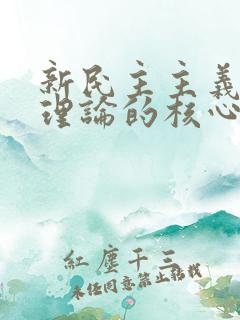 新民主主義
理論的核心
紅塵千三
未經同意禁止轉載